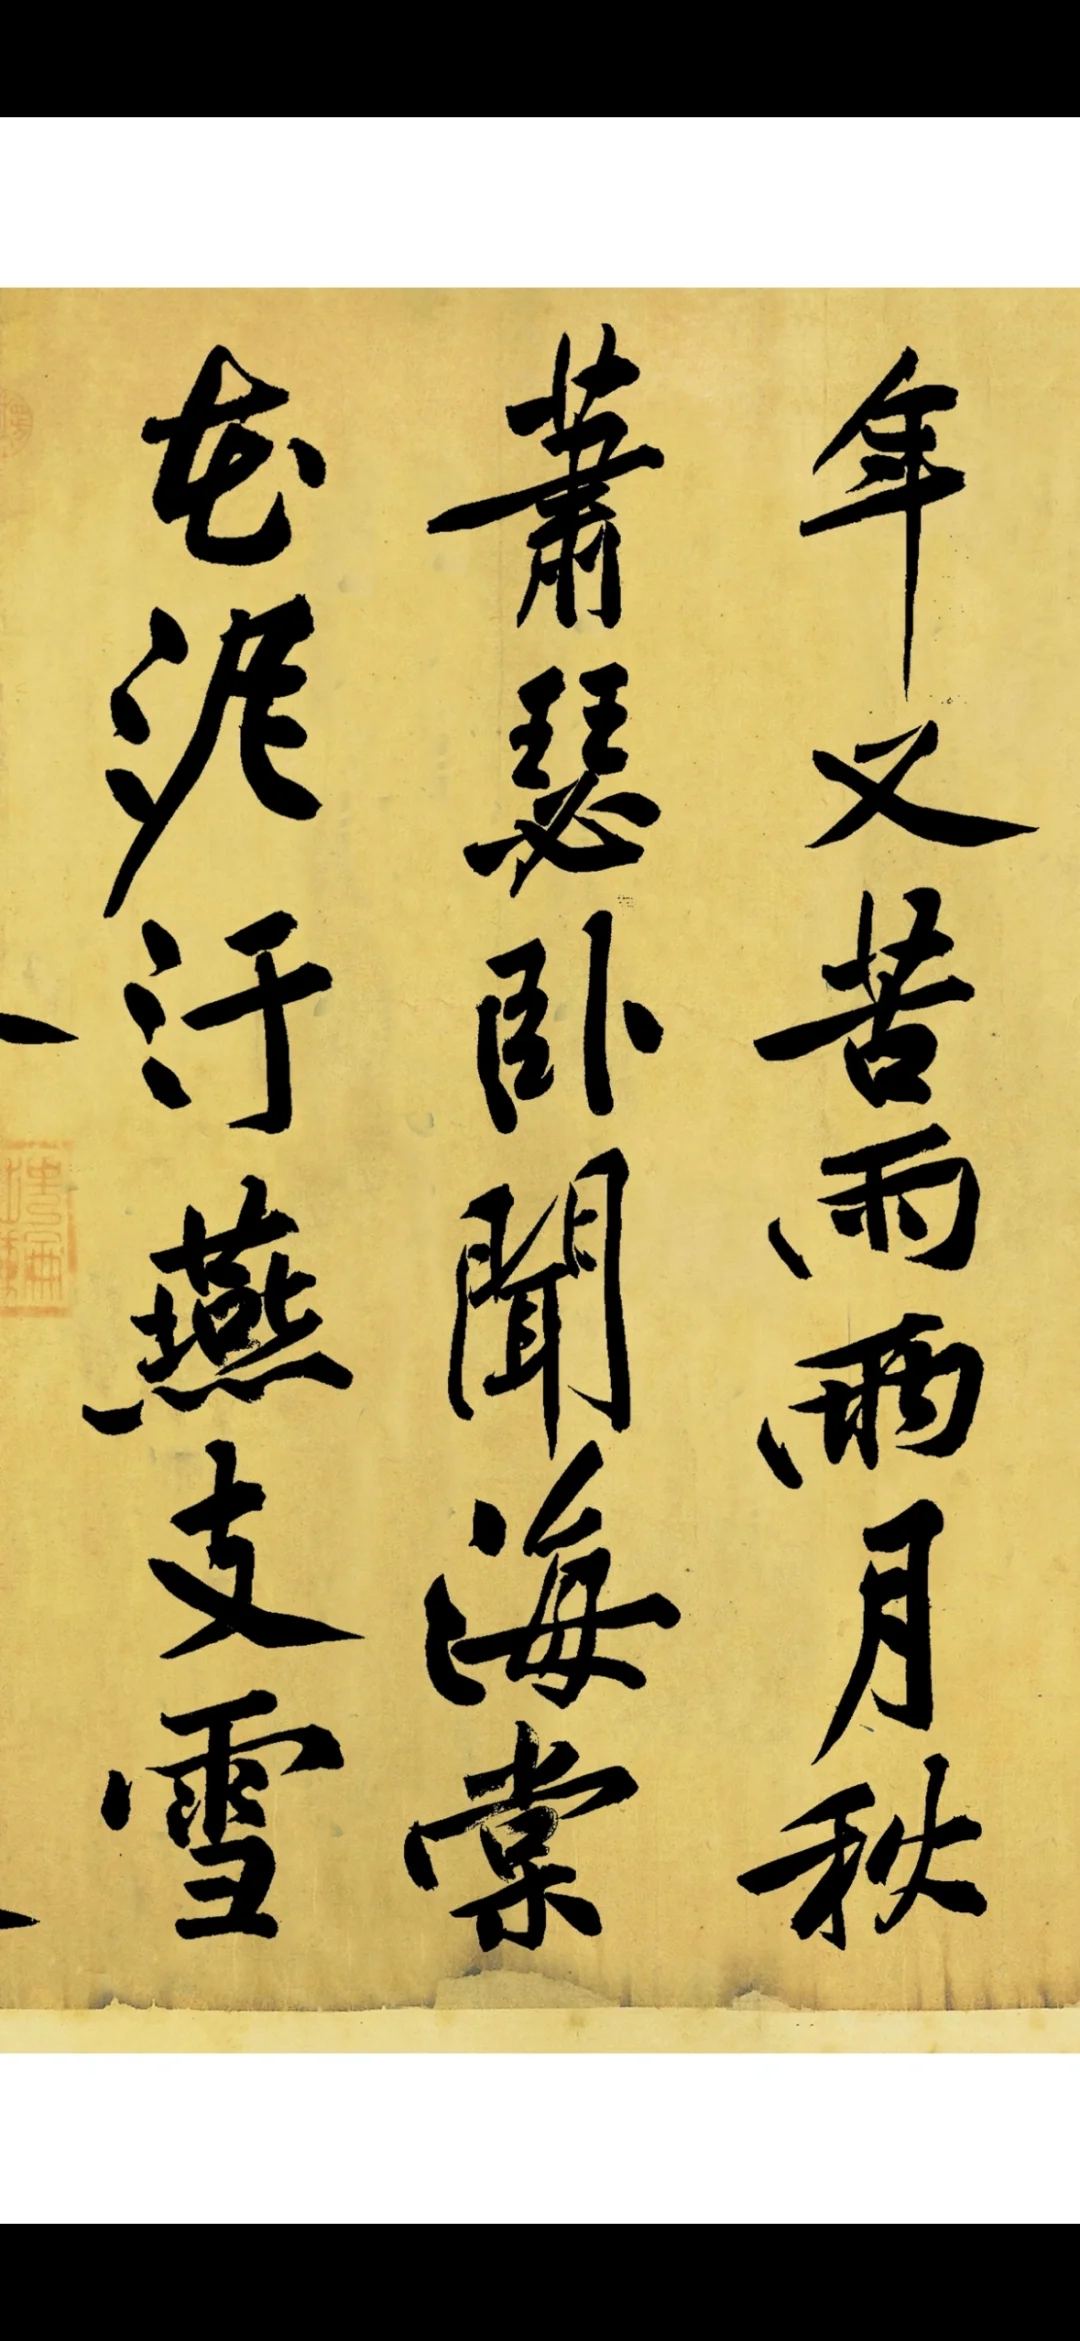 年又苦雨兩月秋
蕭瑟卧聞海棠
花泥汙燕支雪